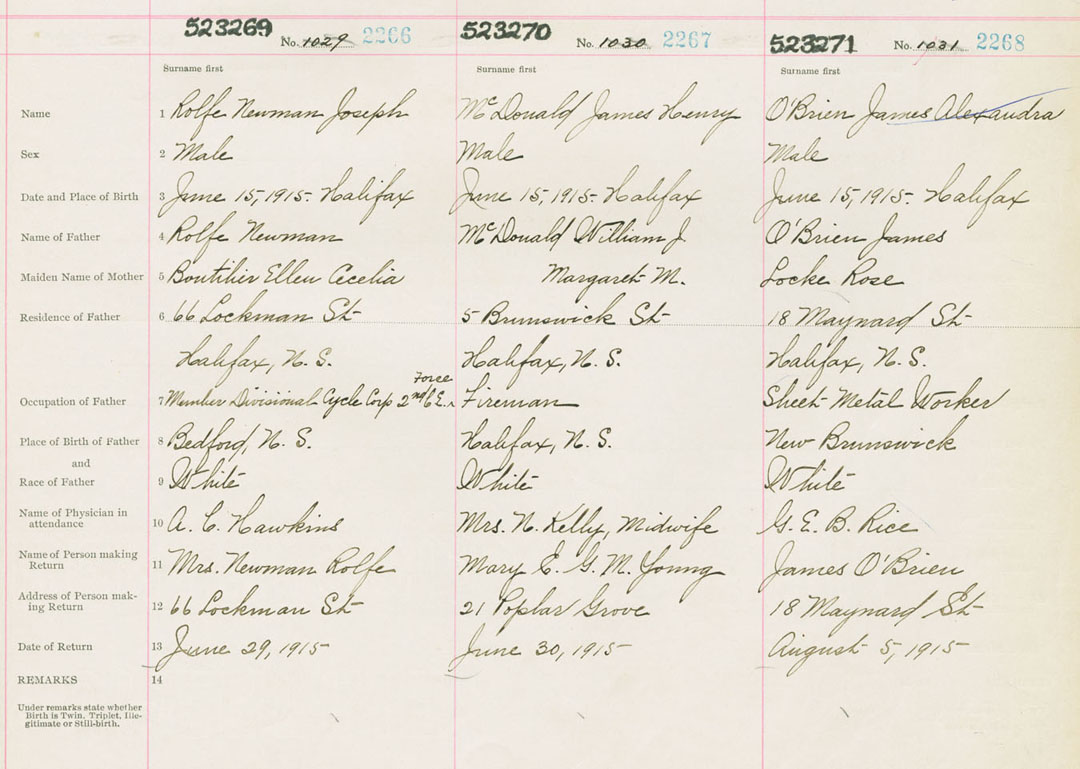 523269 No. 1029 2266 523270 No. 1030 2267 523271 No. 1031 2268
Surname first Surname first Surname first
Name 1 Rolfe Newman Joseph McDonald James Henry O'Brien James Alexandra
Sex 2 Male Male Male
Date and Place of Birth 3 June 15, 1915 - Halifax June 15, 1915 - Halifax June 15, 1915 - Halifax
Name of Father 4 Rolfe Newman McDonald William J O'Brien James
Maiden Name of Mother 5 Boutilier Ellen Cecelia Margaret M. Locke Rose
Residence of Father 6 66 Lockman St 5 Brunswick St 18 Maynard St
Halifax, N. S. Halifax, N. S. Halifax, N. S.
Force
Occupation of Father 7 Member Divisional Cycle Corp 2nd C. E. Fireman Sheet Metal Worker
Place of Birth of Father 8 Bedford, N. S. Halifax, N. S. New Brunswick
and
Race of Father 9 White White White
Name of Physician in
attendance 10 A. C. Hawkins Mrs. N. Kelly, Midwife G. E. B. Rice
Name of Person making
Return 11 Mrs. Newman Rolfe Mary E. G. M. Young James O'Brien
Address of Person mak-
ing Return 12 66 Lockman St 21 Poplar Grove 18 Maynard St
Date of Return 13 June 29, 1915 June 30, 1915 August 5, 1915
REMARKS 14
Under remarks state whether
Birth is Twin. Triplet, Ille-
gitimate or Still-birth.